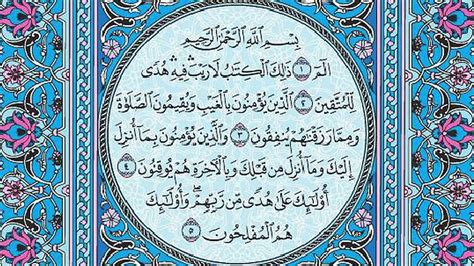 بِسْمِ اللَّهِ الرَّحْمَٰنِ الرَّحِيمِ
الٓمٓ ١ ذَٰلِكَ الْكِتَٰبُ لَا رَيْبَ ۛ فِيهِ ۛ هُدًى
لِّلْمُتَّقِينَ ٢ الَّذِينَ يُؤْمِنُونَ بِالْغَيْبِ وَيُقِيمُونَ الصَّلَوٰةَ
وَمِمَّا رَزَقْنَٰهُمْ يُنفِقُونَ ٣ وَالَّذِينَ يُؤْمِنُونَ بِمَا أُنزِلَ
إِلَيْكَ وَمَا أُنزِلَ مِن قَبْلِكَ وَبِالْآخِرَةِ هُمْ يُوقِنُونَ ٤
أُولَٰئِكَ عَلَىٰ هُدًى مِّن رَّبِّهِمْ ۖ وَأُولَٰئِكَ
هُمُ الْمُفْلِحُونَ ٥